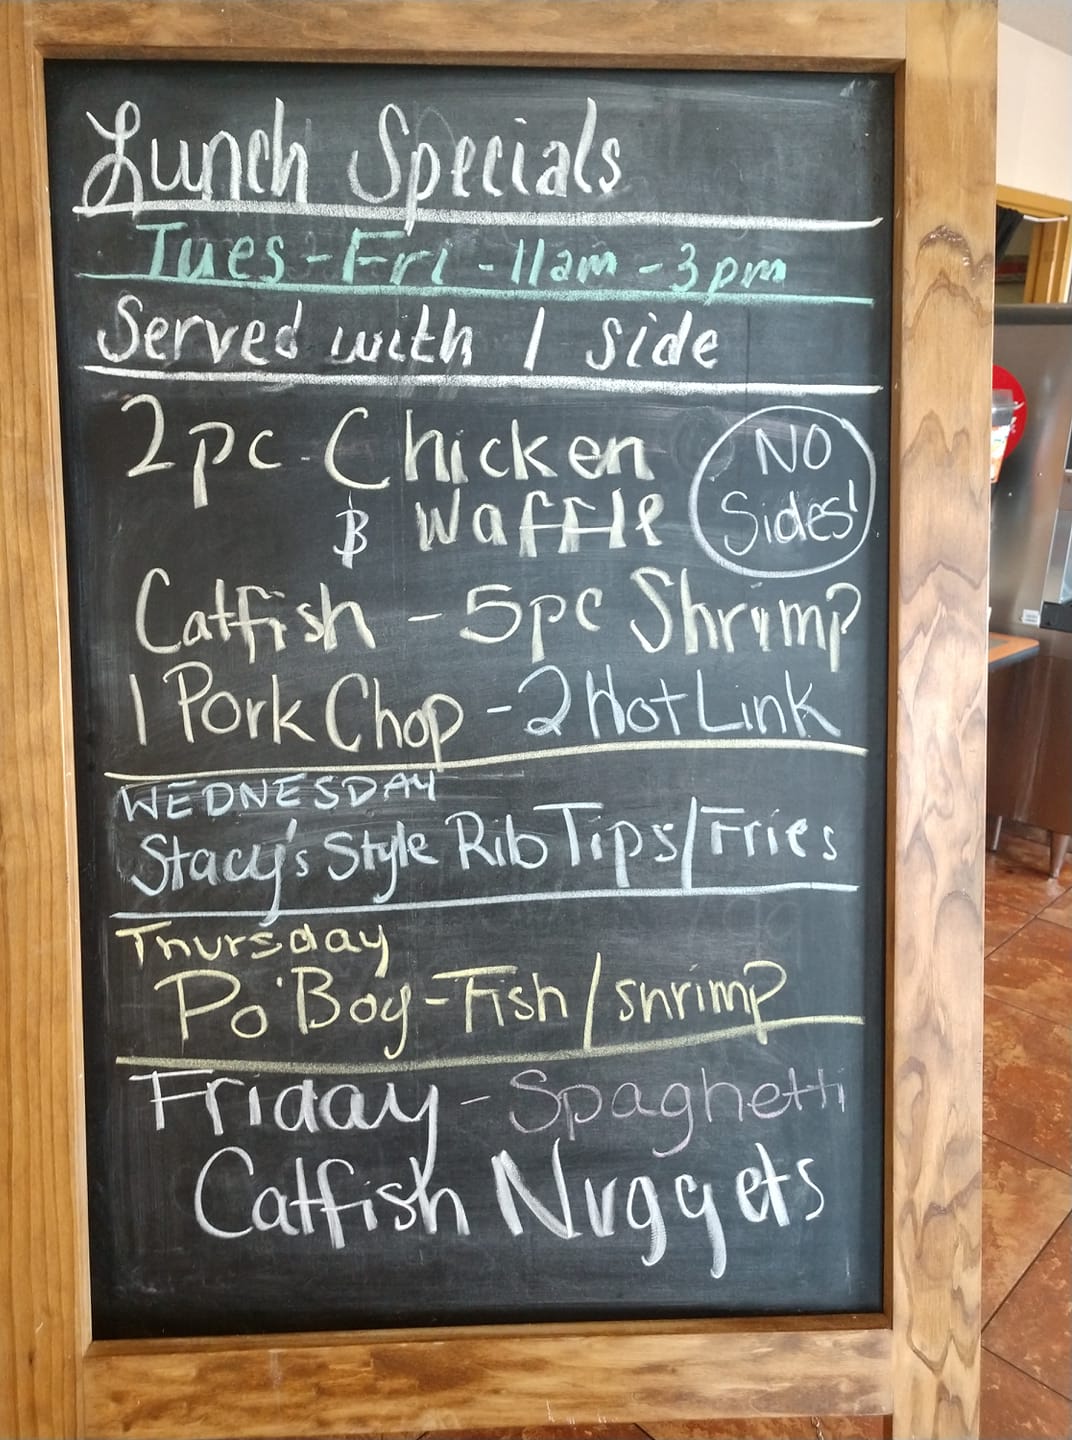 Lunch Specials
Tues - Fri - 11am - 3pm
Served with 1 side
2pc Chicken
& Waffle
NO
Sides!
Catfish - 5pc Shrimp
1 Pork Chop - 2 Hot Link
WEDNESDAY
Stacy's Style Rib Tips/Fries
Thursday
Po'Boy - Fish / shrimp
Friday - Spaghetti
Catfish Nuggets